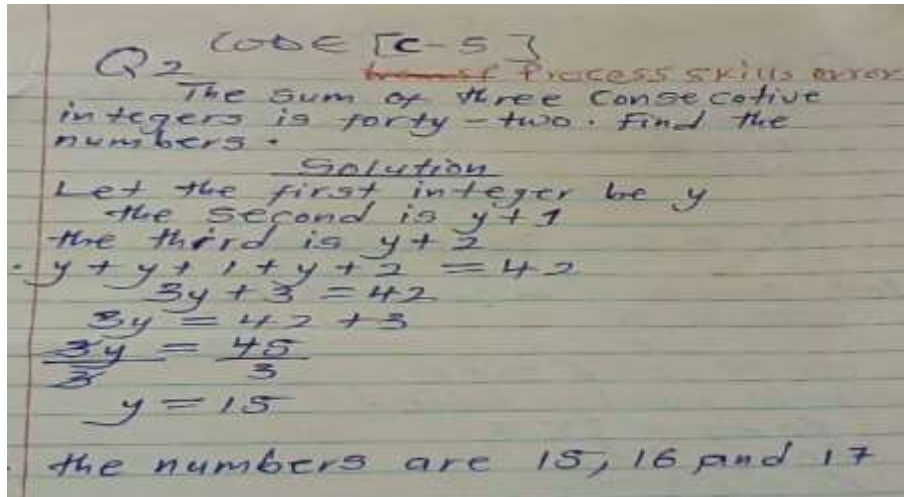 CODE [C-5]
Q2 Process skills error
The sum of three consecotive
integers is forty-two. Find the
numbers.
Solution
Let the first integer be y
the second is y+1
the third is y+2
y+y+1+y+2=42
3y+3=42
3y=42+3
3y = 45
3 3
y=15
the numbers are 15, 16 and 17